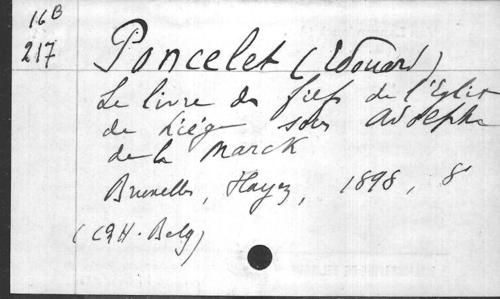 16B
217
Poncelet (Edouard)
Le livre des fiefs de l'Eglise
de Liége sous Adolphe
de la Marck
Bruxelles, Hayez, 1898, 8°
(CRH. Belg)